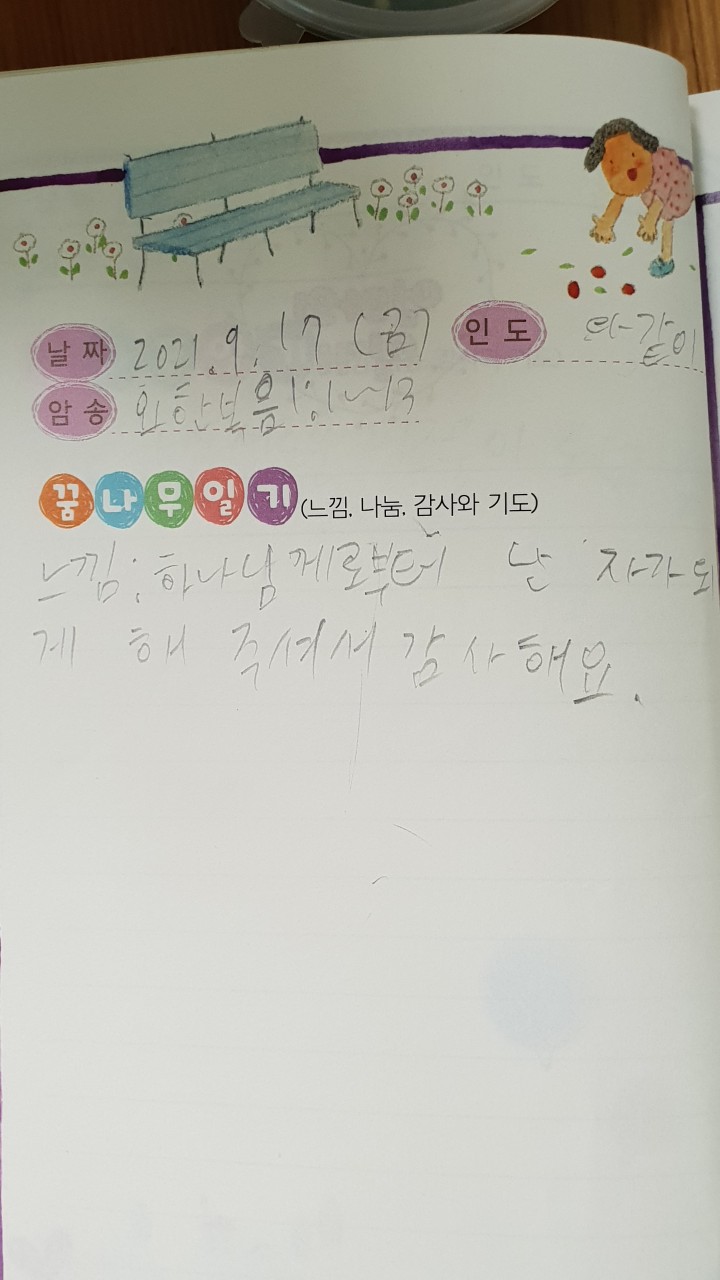 날짜 2021.9.17 (금) 인도 다같이
암송 요한복음 1:1~13
꿈나무일기 (느낌, 나눔, 감사와 기도)
느낌: 하나님께로부터 난 자가 되
게 해 주셔서 감사해요.